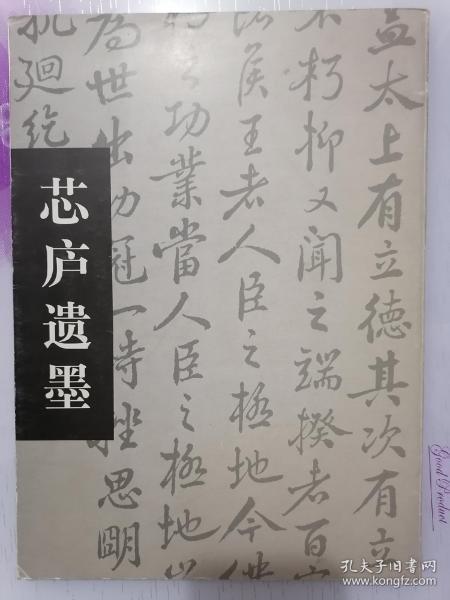 芯庐遗墨
盖太上有立德其次有立
不朽抑又闻之端揆者百
诸侯王老人臣之极地今仆
功业当人臣之极地岂
为世出功冠一时挫思明
孔廻纥
Good Product
孔夫子旧书网
www.kongfz.com